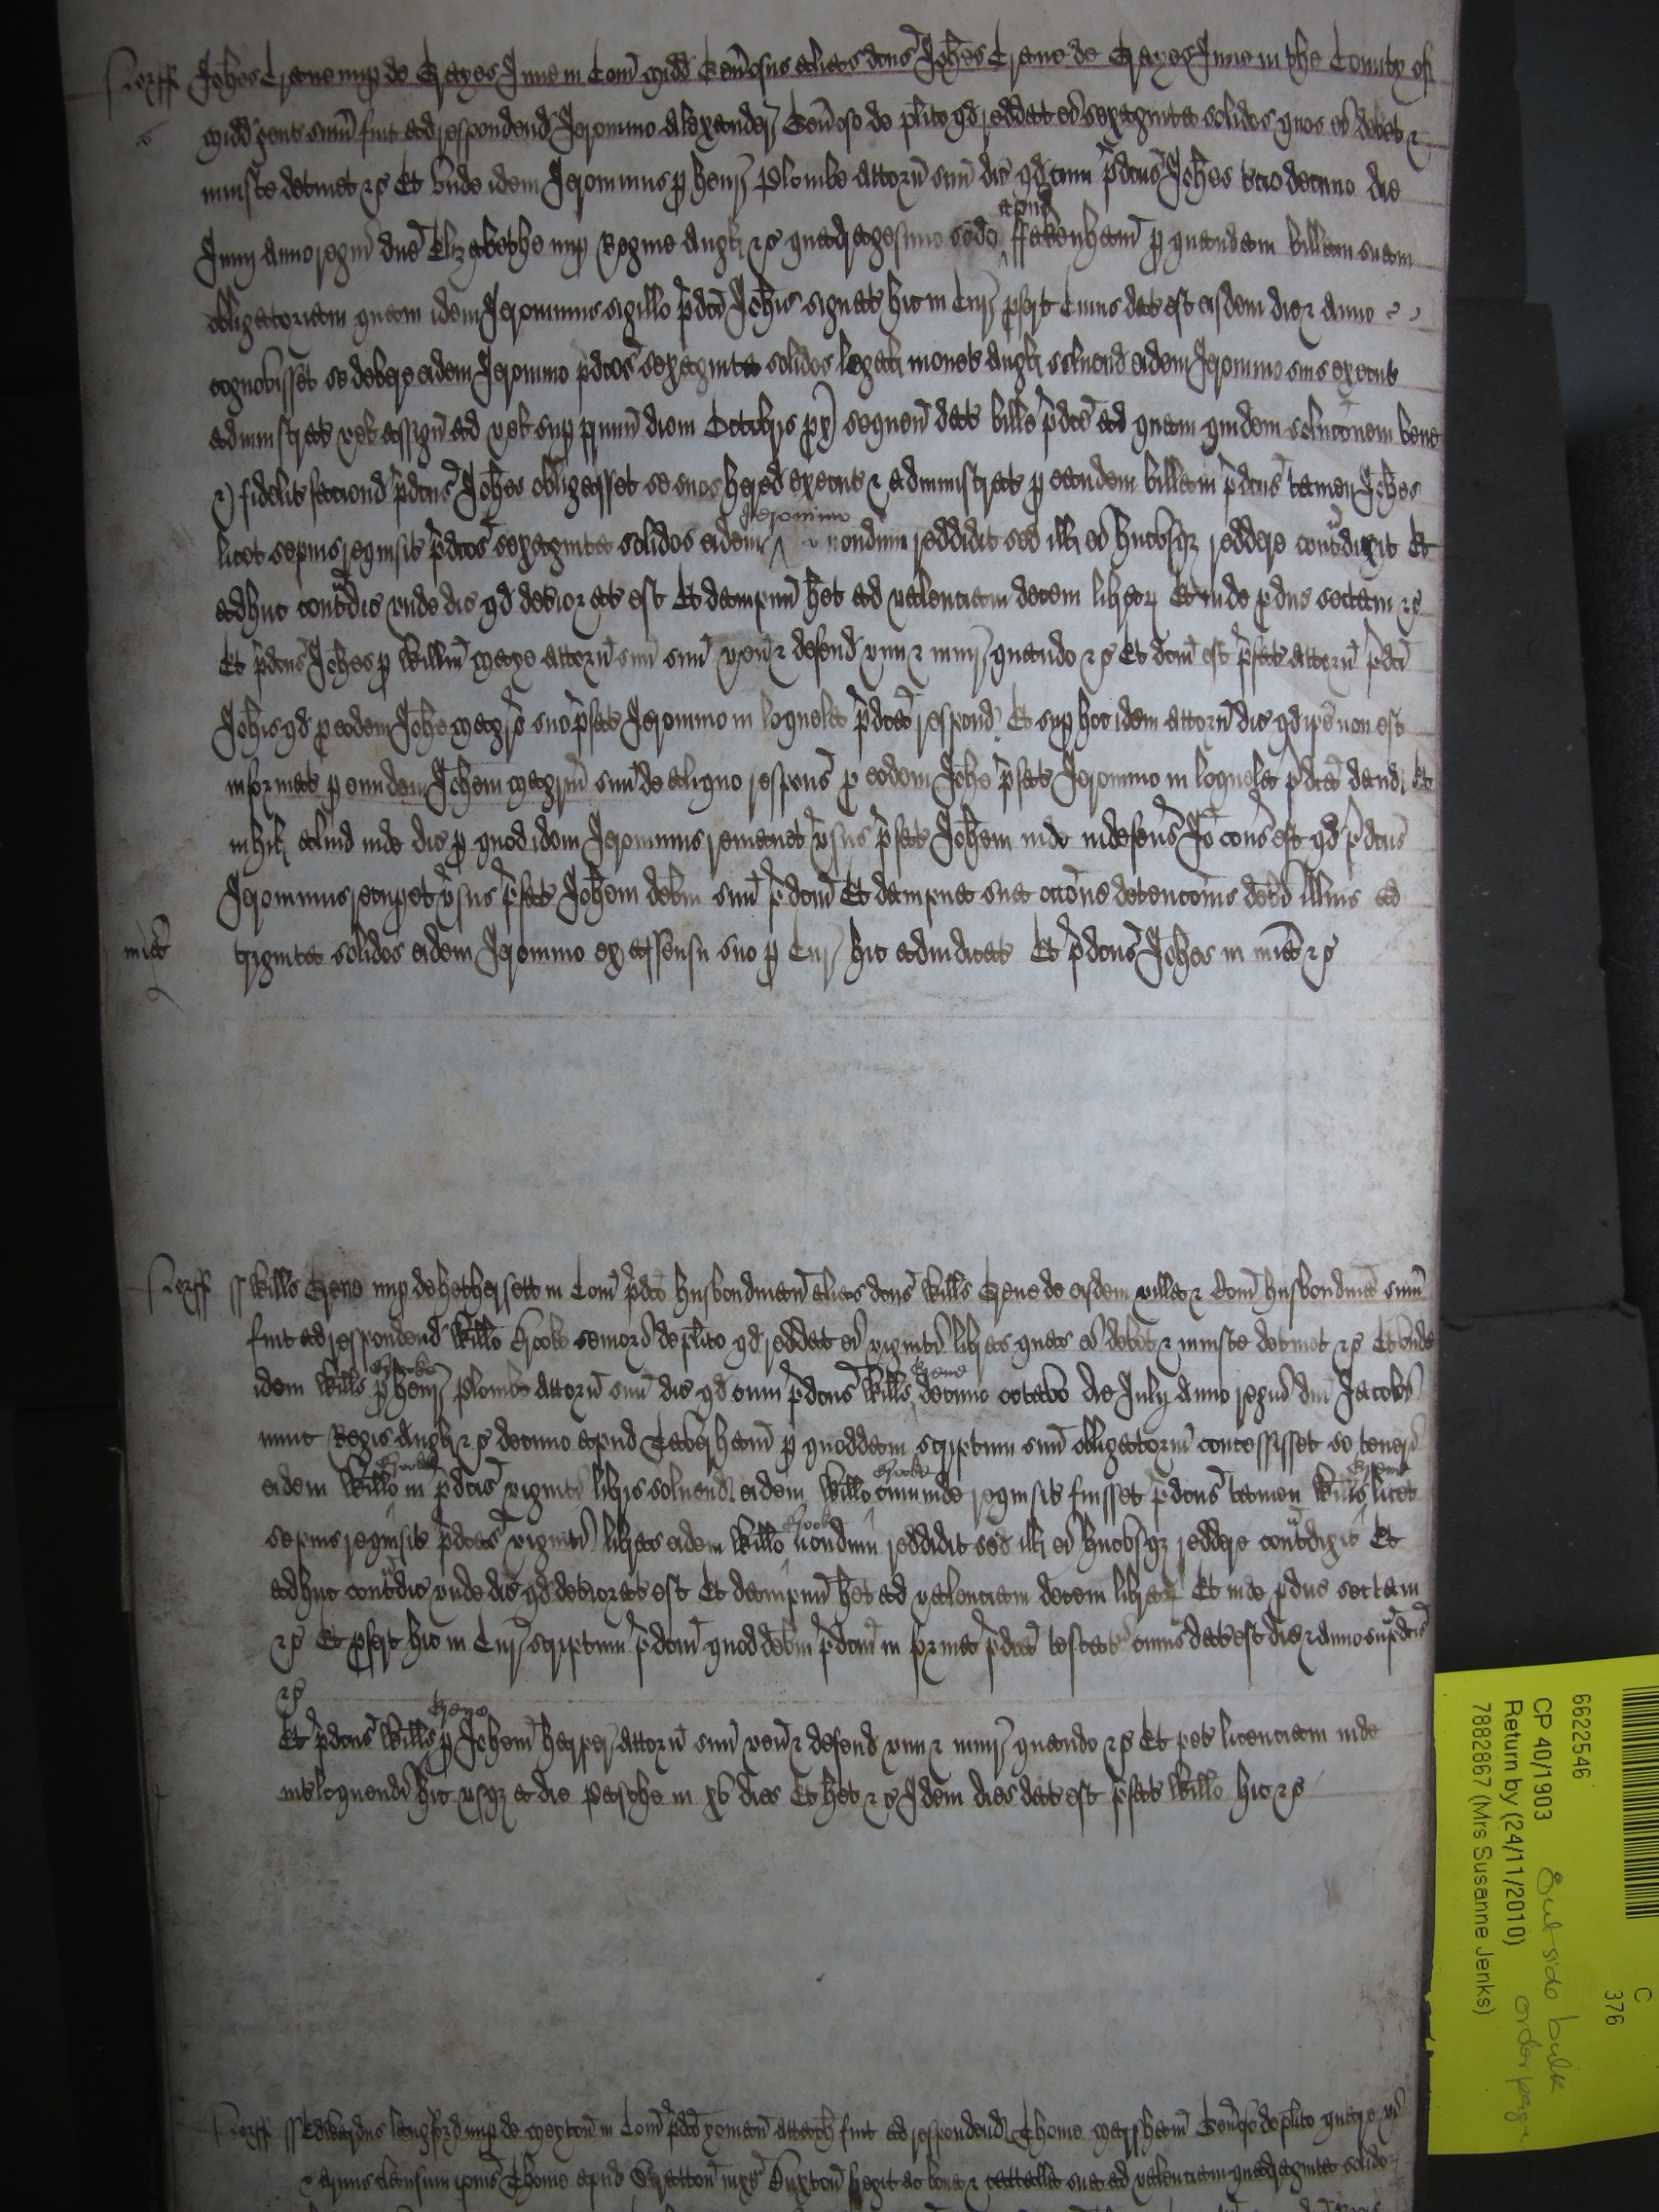 Norff Johes Crane nup de Grayes Inne in Com Midd Generosus alias dcus Johes Crane de Grayes Inne in the County of
Midd gent sum fuit ad respondend Jeronimo Alexander Genoso de plito qd reddat ei sexaginta solidos quos ei debet &
iniuste detinet &c Et unde idem Jeronimus p Henr Plombe attorn suu dic qd cum pdcus Johes decimo die
Junij anno regni dne Elizabethe nup Regine Angl &c quadragesimo scdo apud Fakenham p quandam billam suam
obligatoriam quam idem Jeronimus sigillo pdci Johis signat hic in Cur pfert cuius dat est eisdem die & anno
cognovisset se debere eidem Jeronimo pdcos sexaginta solidos legalis monet Angl solvend eidem Jeronimo suis execut
administrat vel assign ad vel sup primu diem Octobris px sequen dat bille pdce ad quam quidem solucionem bene
& fidelit faciend pdcus Johes obligasset se suos hered execut & administrat p eandem billam pdcus tamen Johes
licet sepius requisit pdcos sexaginta solidos eidem Jeronimo nondum reddidit sed ill ei hucusq reddere contradixit Et
adhuc contradic unde dic qd deteriorat est Et dampnu het ad valenciam decem librar Et inde pduc sectam &c
Et pdcus Johes p Willm Maye attorn suu suu ven & defend vim & iniur quando &c Et dcm est pfat attorn pdci
Johis qd p eodem Johe magro suo pfat Jeronimo in loquela pdca respond Et sup hoc idem attorn dic qd ipse non est
informat p eundem Johem magrm suu de aliquo respons p eodem Johe pfat Jeronimo in loquela pdca dand Et
nihil aliud inde dic p quod idem Jeronimus remanet vsus pfat Johem inde indefens Io cons est qd pdcus
Jeronimus recupet vsus pfat Johem debm suu pdcm Et dampna sua occone detencois debi illius ad
mia triginta solidos eidem Jeronimo ex assensu suo p Cur hic adiudicat Et pdcus Johes in mia &c
Norff ss Wills Grene nup de Hethersett in Com pdco husbondman alias dcus Wills Grene de eisdem villa & Com husbondma sum
fuit ad respondend Willo Crooke seniori de plito qd reddat ei viginti libras quas ei debet & iniuste detinet &c Et unde
idem Wills Crooke p Henr Plombe attorn suu dic qd cum pdcus Wills Grene decimo octavo die July anno regni dni Jacobi
nunc Regis Angl &c decimo apud Taverham p quoddam scriptum suu obligatoriu concessisset se teneri
eidem Willo Crooke in pdcis viginti libris solvend eidem Willo Crooke cum inde requisit fuisset pdcus tamen Willus Grene licet
sepius requisit pdcas viginti libras eidem Willo Crooke nondum reddidit sed ill ei hucusq reddere contradixit Et
adhuc contradic unde dic qd deteriorat est Et dampnu het ad valenciam decem librar Et inde pduc sectam
&c Et pfert hic in Cur scriptum pdcm quod debm pdcm in forma pdca testat cuius dat est die & anno supradcis
&c
Et pdcus Wills Grene p Johem Harper attorn suu ven & defend vim & iniur quando &c Et pet licenciam inde
intloquendi hic usq a die Pasche in xv dies Et het &c Idem dies dat est pfat Willo hic &c
Norff ss Edwardus Langford nup de Marton in Com pdco yoman attach fuit ad respondend Thome Marsham Genoso de plito quare vi
& armis clausum ipius Thome apud Stratton fregit ac bona & catalla sua ad valenciam quadraginta solidor
6622546
CP 40/1903
Return by (24/11/2010)
7882867 (Mrs Susanne Jenks)
C
376
Outside bulk
order page